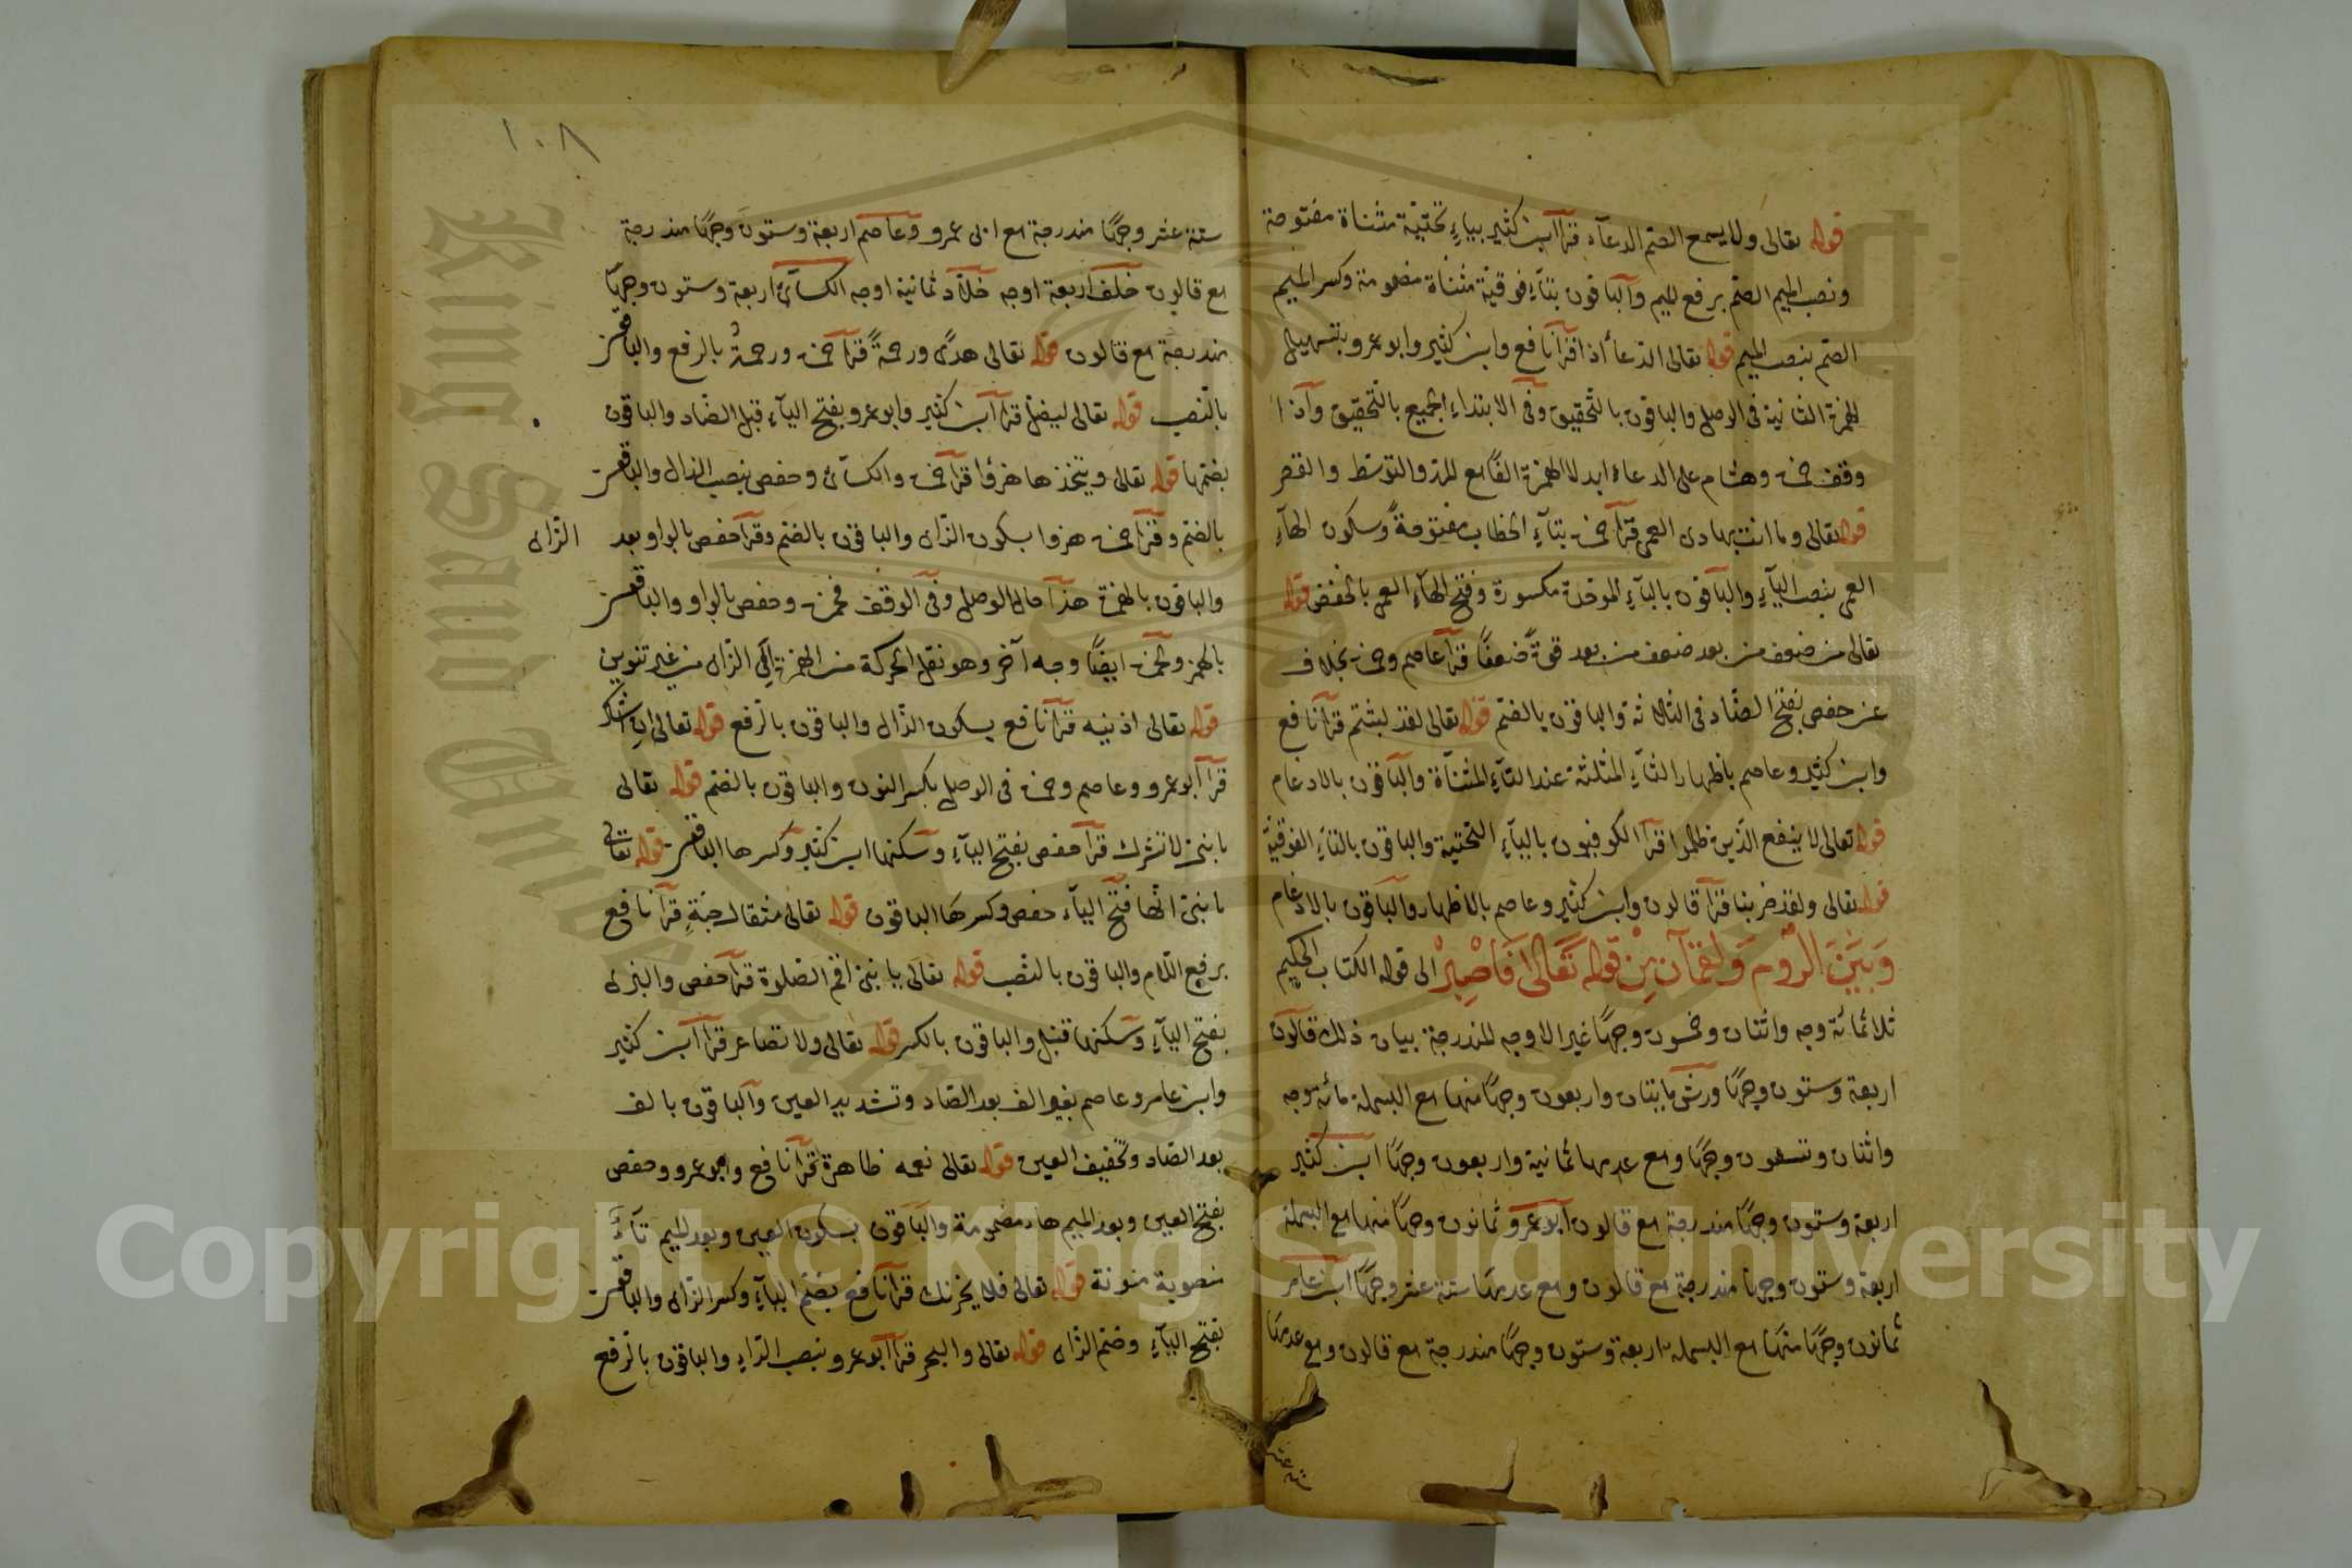 قوله تعالى ولا يسمع الصم الدعآء قرأ ابن كثير بيآءٍ تحتيّة مثناة مفتوحة
ونصب الميم الصم برفع الميم والباقون بتآءٍ فوقيّة مثناة مضمومة وكسر الميم
الصم بنصب الميم قوله تعالى الدعآ أذا قرأ نافع وابن كثير وابو عمرو بتسهيل
الهمزة الثانية فى الوصل والباقون بالتحقيق وفى الابتداء الجميع بالتحقيق وآذا
وقف حمزة وهشام على الدعاء ابدلا الهمزة الفًا مع المد والتوسّط والقصر
قوله تعالى وما انت بهادى العمى قرأ حمزة بتآءِ الخطاب مفتوحةً وسكون الهآءِ
العمى بنصب اليآءِ والباقون بالبآءِ الموحّدة مكسورة وفتح الهآءِ العمى بالخفض قوله
تعالى من ضعف من بعد ضعف من بعد قوةٍ ضعفًا قرأ عاصم وحمزة بخلاف
عن حفص بفتح الضّاد فى الثلاثة والباقون بالضم قوله تعالى لقد لبثتم قرأ نافع
وابن كثير وعاصم باظهار الثآءِ المثلثة عند التآءِ المثنآة والباقون بالادغام
قوله تعالى لا ينفع الّذين ظلموا قرأ الكوفيون باليآءِ التحتية والباقون بالتآءِ الفوقيّة
قوله تعالى ولقد ضربنا قرأ قالون وابن كثير وعاصم بالاظهار والباقون بالادغام
وَبَيْنَ الرُّوم وَلقمَآن مِنْ قوله تَعَالى فَاصْبِرْ الى قوله الكتاب الحكيم
ثلاثمائة وجه واثنتان وخمسون وجهًا غير الاوجه المندرجة بيان ذلك قالون
اربعة وستون وجهًا ورش مايتان واربعون وجهًا منها مع البسملة مائة وجه
واثنان وتسعون وجهًا ومع عدمها ثمانية واربعون وجهًا ابن كثير
اربعة وستون وجهًا مندرجة مع قالون ابو عمرو ثمانون وجهًا منها مع البسملة
اربعة وستون وجهًا مندرجة مع قالون ومع عدمها ستة عشر وجهًا ابن عامر
ثمانون وجهًا منها مع البسملة اربعة وستون وجهًا مندرجة مع قالون ومع عدمها
ستة عشر
١٠٨
ستة عشر وجهًا مندرجة مع ابى عمرو وعاصم اربعة وستون وجهًا مندرجة
مع قالون خلف اربعة اوجه خلآد ثمانية اوجه الكسآئى اربعة وستون وجهًا
مندرجة مع قالون قوله تعالى هدًى ورحمةً قرأ حمزة ورحمةٌ بالرفع والباقون
بالنّصب قوله تعالى ليضل قرأ ابن كثير وابو عمرو بفتح اليآءِ قبل الضّاد والباقون
بضمّها قوله تعالى ويتخذها هزؤًا قرأ حمزة والكسآئى وحفص بنصب الذال والباقون
بالضّم وقرأ حمزة هزوا بسكون الزاى والباقون بالضم وقرأ حفص بالواو بعد
الزاى
والباقون بالهمزة هذا حال الوصل وفى الوقف فحمزة وحفص بالواو والباقون
بالهمز ولحمزة ايضًا وجه آخر وهو نقل الحركة من الهمزة الى الزاى من غير تنوين
قوله تعالى اذنيه قرأ نافع بسكون الذّال والباقون بالرفع قوله تعالى ان اشكر
قرأ أبو عمرو وعاصم وحمزة فى الوصل بكسر النون والباقون بالضم قوله تعالى
يا بنىّ لا تشرك قرأ حفص بفتح اليآءِ وسكنها ابن كثير وكسرها الباقون قوله تعالى
يا بنىّ انّها فتح اليآء حفص وكسرها الباقون قوله تعالى مثقال حبّةٍ قرأ نافع
برفع اللّام والباقون بالنصب قوله تعالى يا بنىّ اقم الصلوة قرأ حفص والبزى
بفتح اليآءِ وسكنها قنبل والباقون بالكسر قوله تعالى ولا تصاعر قرأ ابن كثير
وابن عامر وعاصم بغير الف بعد الصّاد وتشديد العين والباقون بالف
بعد الصّاد وتخفيف العين قوله تعالى نعمه ظاهرة قرأ نافع وابو عمرو وحفص
بفتح العين وبعد الميم هاء مضمومة والباقون بسكون العين وبعد الميم تآءً
منصوبة منونة قوله تعالى فلا يحزنك قرأ نافع بضمّ اليآءِ وكسر الزاى والباقون
بفتح اليآءِ وضم الزاى قوله تعالى والبحر قرأ أبو عمرو بنصب الرّاءِ والباقون بالرفع
King Saud University
Copyright © King Saud University